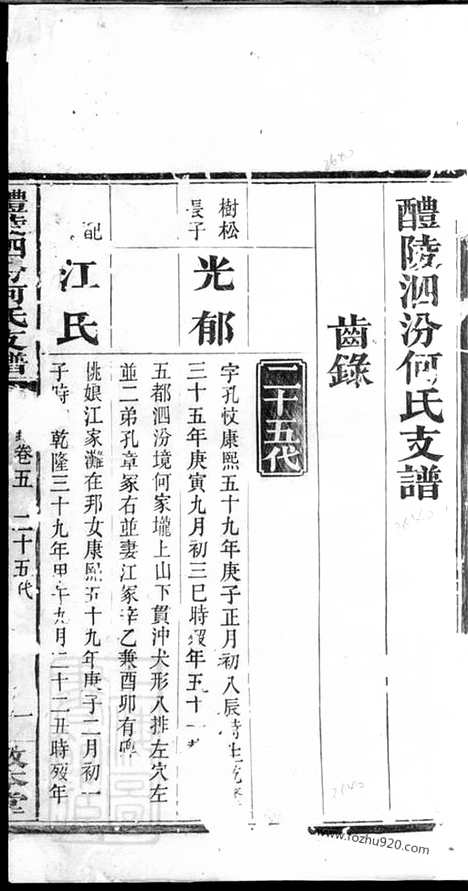 醴陵泗汾何氏支譜
齒錄
二十五代
樹松
長子
光郁
字孔忮康熙五十九年庚子正月初八辰時生乾隆
三十五年庚寅九月初三巳時歿年五十一
五都泗汾境何家壠上山下貫沖犬形八排左穴左
並二弟孔章冢右並妻江冢辛乙兼酉卯有碑
配
江氏
桃娘江家灘在邦女康熙五十九年庚子二月初一
子時 乾隆三十九年甲午九月二十二丑時歿年
醴陵泗汾何氏支譜
卷五 二十五代
一
敬本堂
www.fozhu920.com